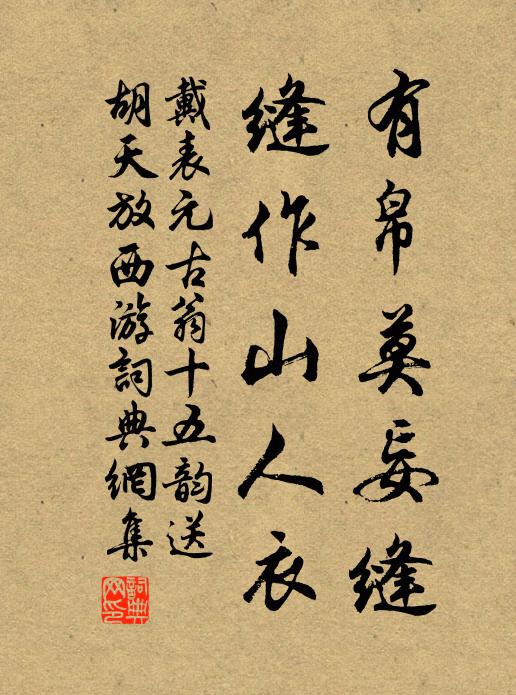 有帛莫妄縫
縫作山人衣
戴表元古翁十五韵送
胡天放西游詞典網集
詞典網印